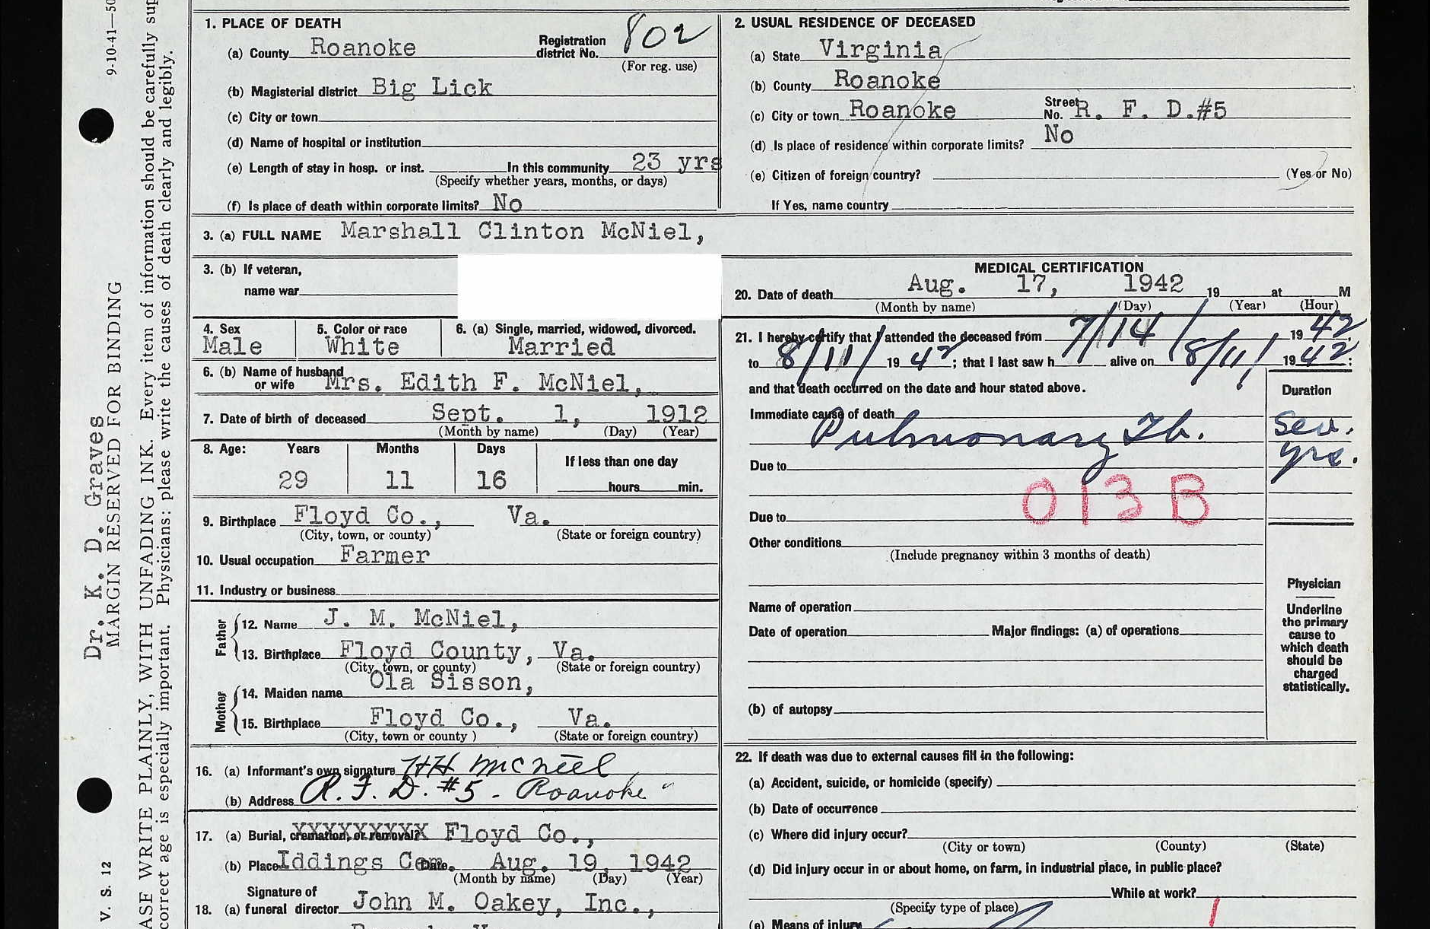 9-10-41—50
Dr. K. D. Graves
MARGIN RESERVED FOR BINDING
V. S. 12
ASE WRITE PLAINLY, WITH UNFADING INK. Every item of information should be carefully sup
correct age is especially important. Physicians: please write the causes of death clearly and legibly.
1. PLACE OF DEATH
(a) County Roanoke Registration district No. 802
(For reg. use)
(b) Magisterial district Big Lick
(c) City or town
(d) Name of hospital or institution
(e) Length of stay in hosp. or inst. In this community 23 yrs
(Specify whether years, months, or days)
(f) Is place of death within corporate limits? No
2. USUAL RESIDENCE OF DECEASED
(a) State Virginia
(b) County Roanoke
(c) City or town Roanoke Street No. R. F. D.#5
(d) Is place of residence within corporate limits? No
(e) Citizen of foreign country? (Yes or No)
If Yes, name country
3. (a) FULL NAME Marshall Clinton McNiel,
3. (b) If veteran,
name war
4. Sex 5. Color or race 6. (a) Single, married, widowed, divorced.
Male White Married
6. (b) Name of husband or wife Mrs. Edith F. McNiel,
7. Date of birth of deceased Sept. 1, 1912
(Month by name) (Day) (Year)
8. Age: Years Months Days If less than one day
29 11 16 hours min.
9. Birthplace Floyd Co., Va.
(City, town, or county) (State or foreign country)
10. Usual occupation Farmer
11. Industry or business
Father
12. Name J. M. McNiel,
13. Birthplace Floyd County, Va.
(City, town, or county) (State or foreign country)
Mother
14. Maiden name Ola Sisson,
15. Birthplace Floyd Co., Va.
(City, town or county ) (State or foreign country)
16. (a) Informant's own signature HH McNeel
(b) Address R. F. D. #5 - Roanoke "
17. (a) Burial, cremation, or removal? XXXXXXXXX Floyd Co.,
(b) Place Iddings Cem. Date Aug. 19, 1942
(Month by name) (Day) (Year)
Signature of
18. (a) funeral director John M. Oakey, Inc.,
MEDICAL CERTIFICATION
20. Date of death Aug. 17, 1942 19 at M
(Month by name) (Day) (Year) (Hour)
21. I hereby certify that I attended the deceased from 7/14/ 1942
to 8/11/ 1942; that I last saw h alive on 8/11/ 1942;
and that death occurred on the date and hour stated above.
Duration
Immediate cause of death
Pulmonary Tb. Sev. yrs.
Due to
013B
Due to
Other conditions
(Include pregnancy within 3 months of death)
Name of operation
Date of operation Major findings: (a) of operations
(b) of autopsy
Physician
Underline
the primary
cause to
which death
should be
charged
statistically.
22. If death was due to external causes fill in the following:
(a) Accident, suicide, or homicide (specify)
(b) Date of occurrence
(c) Where did injury occur?
(City or town) (County) (State)
(d) Did injury occur in or about home, on farm, in industrial place, in public place?
While at work?
(Specify type of place)
(e) Means of injury